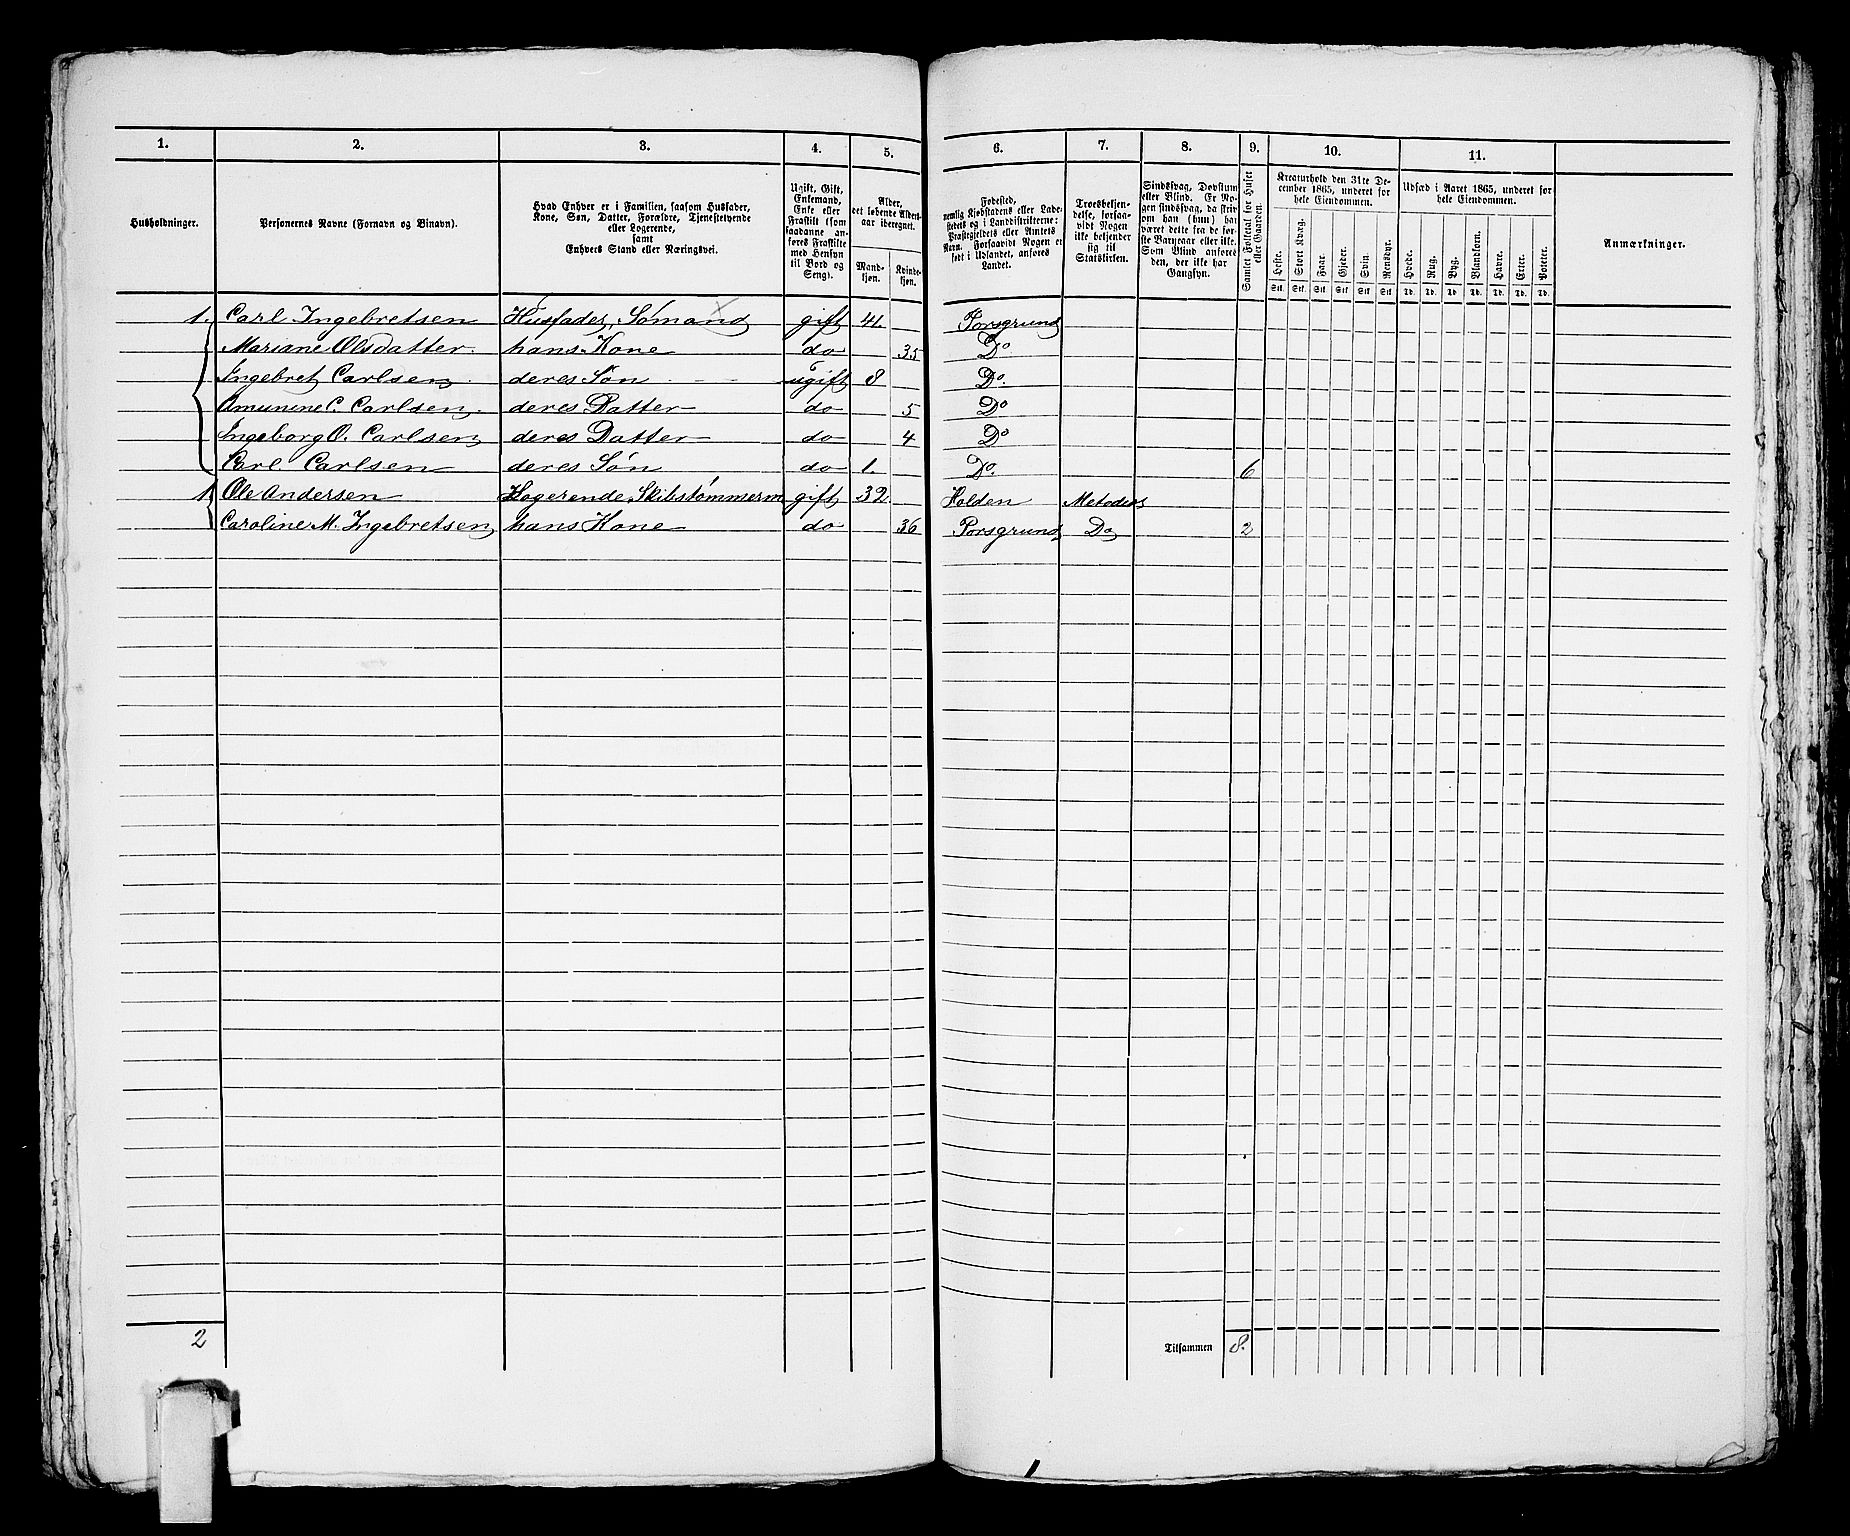 1. 2. 3. 4. 5. 6. 7. 8. 9. 10. 11.
Husholdninger.
Personernes Navne (Fornavn og Binavn).
Hvad Enhver er i Familien, saasom Husfader,
Kone, Søn, Datter, Forældre, Tjenestetyende
eller Logerende,
samt
Enhvers Stand eller Næringsvei.
Ugift, Gift,
Enkemand,
Enke eller
Fraskilt (som
saadanne an-
føres Fraskilte
med Hensyn
til Bord og
Seng).
Alder,
det løbende Alders-
aar iberegnet.
Mand-
kjøn.
Kvinde-
kjøn.
Fødested,
nemlig Kjøbstadens eller Lade-
stedets og i Landdistrikterne:
Præstegjeldets eller Annexets
Navn. Forsaavidt Nogen er
født i Udlandet, anføres
Landet.
Troesbekjen-
delse, forsaa-
vidt Nogen
ikke bekjender
sig til
Statskirken.
Sindssvag, Døvstum
eller Blind. Er No-
gen sindssvag, da skriv
om han (hun) har
været dette fra de før-
ste Barneaar eller ikke.
Som Blind anføres
den, der ikke har
Gangsyn.
Samlet Folketal for Huset
eller Gaarden.
Kreaturhold den 31te De-
cember 1865, underet for
hele Eiendommen.
Heste. Stort Kvæg. Faar. Gjeder. Svin. Rensdyr.
Stk. Stk. Stk. Stk. Stk. Stk.
Udsæd i Aaret 1865, underet for
hele Eiendommen.
Hvede. Rug. Byg. Blandkorn. Havre. Erter. Poteter.
Td. Td. Td. Td. Td. Td. Td.
Anmærkninger.
1. Carl Ingebretsen Husfader, Sømand gift 41. Porsgrund
Mariane Olsdatter. hans Kone do 35 Do
Ingebret Carlsen deres Søn ugift 8 Do.
Amunine C. Carlsen. deres Datter do 5 Do
Ingeborg O. Carlsen deres Datter do 4 Do
Carl Carlsen deres Søn do 1. Do. 6
1 Ole Andersen Logerende, Skibstømmerm gift 32 Holden
Caroline M. Ingebretsen hans Kone do 36 Porsgrund Do 2
2 Tilsammen 8.